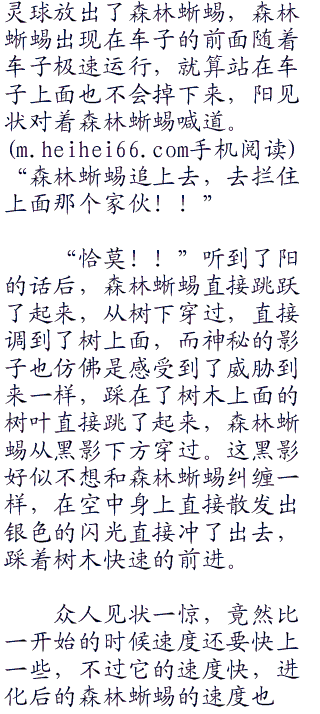 灵球放出了森林蜥蜴，森林
蜥蜴出现在车子的前面随着
车子极速运行，就算站在车
子上面也不会掉下来，阳见
状对着森林蜥蜴喊道。
(m.heihei66.com手机阅读)
“森林蜥蜴追上去，去拦住
上面那个家伙！！”
“恰莫！！”听到了阳
的话后，森林蜥蜴直接跳跃
了起来，从树下穿过，直接
调到了树上面，而神秘的影
子也仿佛是感受到了威胁到
来一样，踩在了树木上面的
树叶直接跳了起来，森林蜥
蜴从黑影下方穿过。这黑影
好似不想和森林蜥蜴纠缠一
样，在空中身上直接散发出
银色的闪光直接冲了出去，
踩着树木快速的前进。
众人见状一惊，竟然比
一开始的时候速度还要快上
一些，不过它的速度快，进
化后的森林蜥蜴的速度也